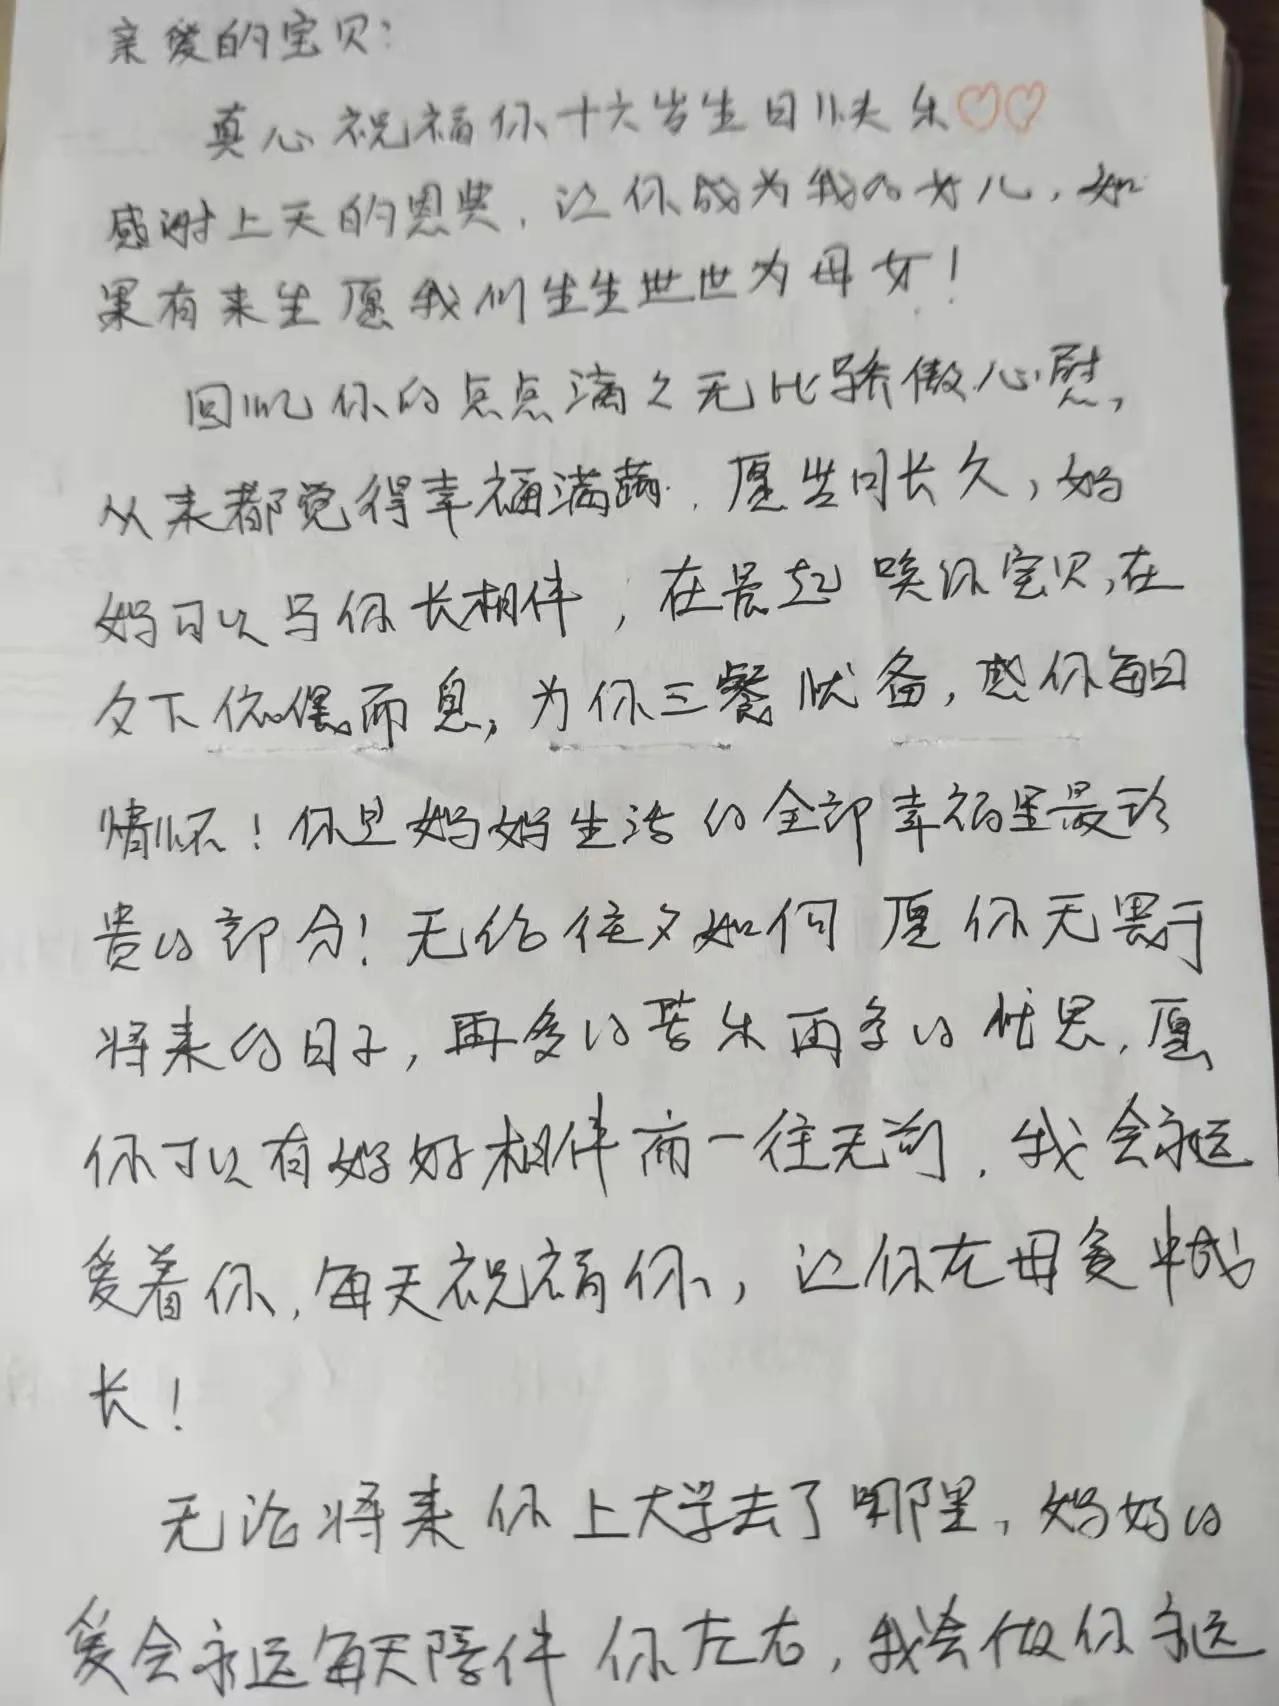 亲爱的宝贝:
真心祝福你十六岁生日快乐♡♡
感谢上天的恩典,让你成为我的女儿,如
果有来生愿我们生生世世为母女!
回忆你的点点滴々无比骄傲心慰,
从来都觉得幸福满满.愿世间长久,妈
妈可以与你长相伴,在晨起唤你宝贝,在
夕下依偎而息,为你三餐忧备,惑你每日
情怀!你是妈妈生活的全部幸福里最珍
贵的部分!无论往夕如何愿你无畏于
将来的日子,再多的苦乐再多的忧思,愿
你可以有妈妈相伴而一往无前.我会永远
爱着你,每天祝福你,让你在母爱中成
长!
无论将来你上大学去了哪里,妈妈的
爱会永远每天陪伴你左右,我会做你永远